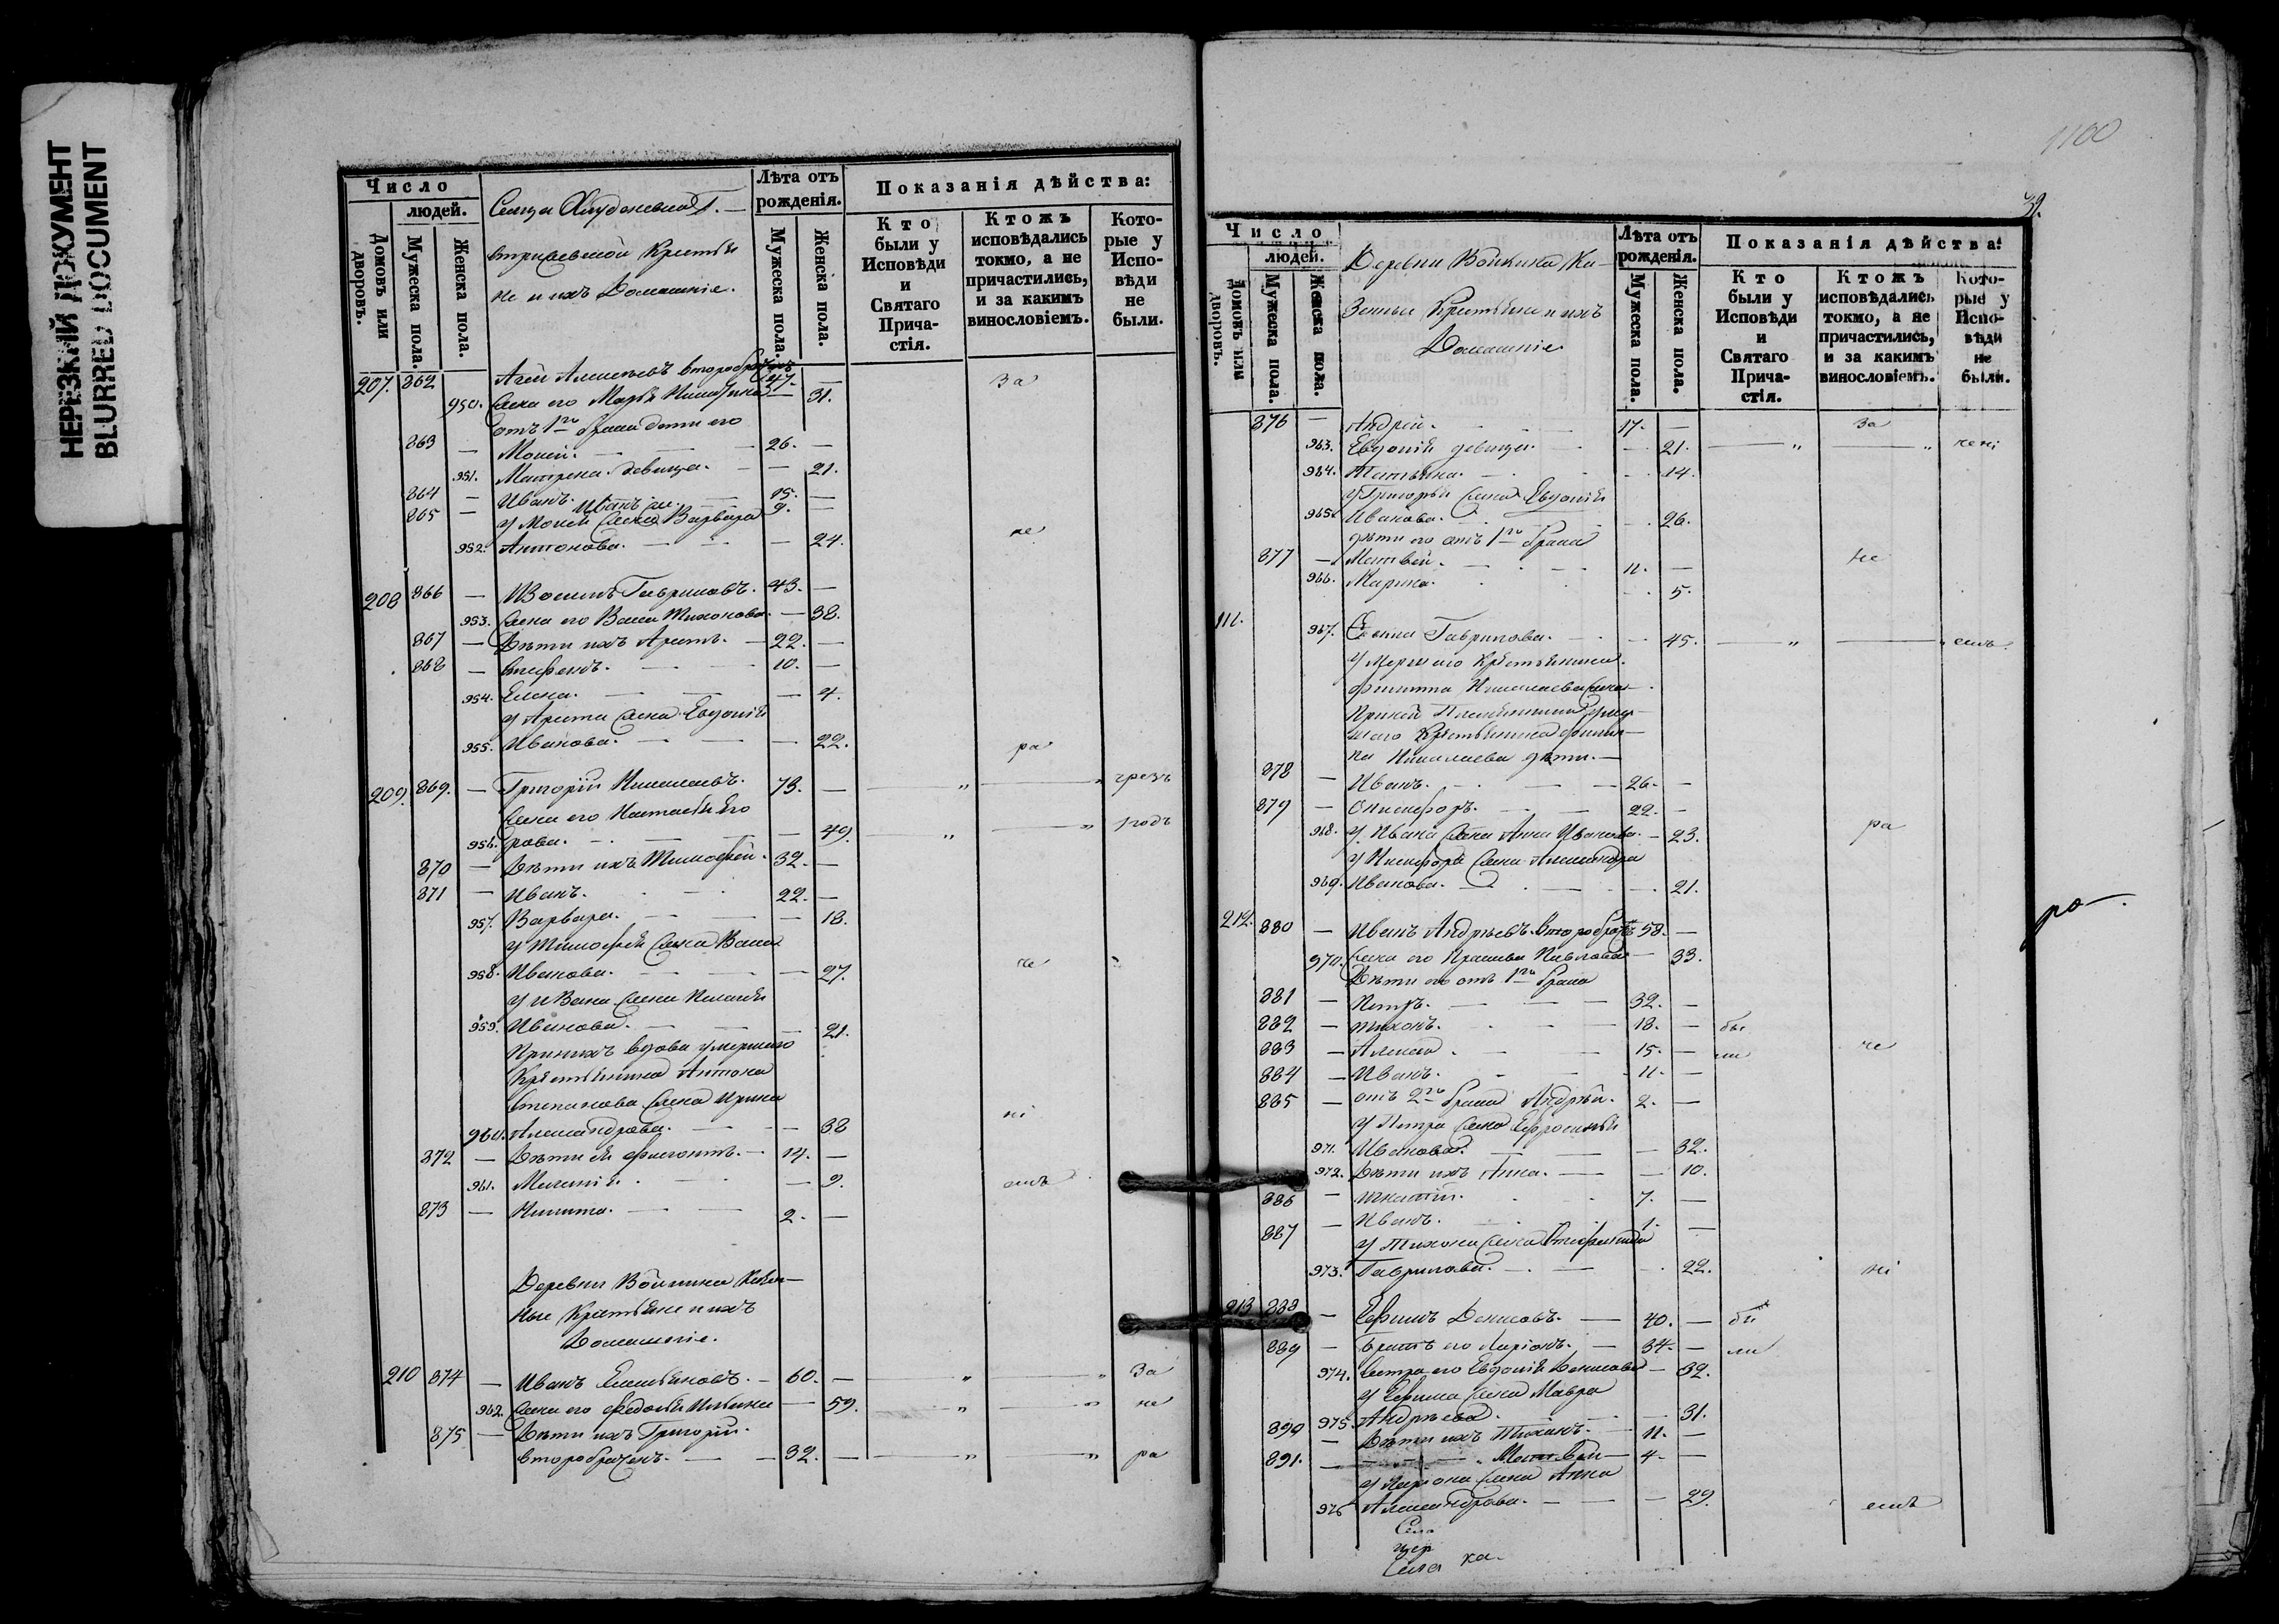 НЕРЕЗКИЙ ДОКУМЕНТ
BLURRED DOCUMENT
Число
людей.
Домовъ или дворовъ.
Мужеска пола.
Женска пола.
Лѣта отъ рожденія.
Мужеска пола.
Женска пола.
Показанія дѣйства:
Кто были у Исповѣди и Святаго Причастія.
Ктожъ исповѣдались токмо, а не причастились, и за какимъ винословіемъ.
Которые у Исповѣди не были.
не и ихъ Домашніе.
207. 862 Агей Алексѣевъ второбрачн. 47. — За
950. Жена его Марья 31.
отъ 1го брака дети его
863 — Мокей. — 26. —
951. Матрена девица. — 21.
864 — Иванъ. 15. —
865 — Иванъ 9. —
у Мокея жена Варвара
952. Антонова. — 24. не
208 866 — Иванъ Гавриловъ. 43. —
953. Жена его — 38.
867 — Дѣти ихъ — 22. —
868 — 10. —
954. Елена. — 4.
жена Евдокія
955. Иванова. — 22. ра
209. 869. — Григорій Николаевъ. 73. — " — " чрезъ
Жена его Настасья Его
956. рова. — 49. " — " родъ
870 — Дѣти ихъ Тимофей. 32. —
871 — Иванъ. 22. —
957. Варвара. — 18.
у Тимофея жена
958. Иванова. — 27. че
у Ивана жена Пелагія
959. Иванова. — 21.
При нихъ вдова умершаго
Крестьянина Антона
Степанова жена Ирина
960. Александрова. — 38 ні
872 — Дѣти ея — 14. —
961. — 9. емъ
873 — Никита. — 2. —
Деревни Войкина Казен-
ные Крестьяне и ихъ
Домашніе.
210 874 — Иванъ Емельяновъ. — 60. — " — " За
962. Жена его Федосья Ильина — 59. — " — " не
875 — Дѣти ихъ Григорій.
второбраченъ. — 32. — " — " ра
1100
39.
Число
людей.
Домовъ или дворовъ.
Мужеска пола.
Женска пола.
Деревни Войкина Ка-
зенные Крестьяне и ихъ
Домашніе
Лѣта отъ рожденія.
Мужеска пола.
Женска пола.
Показанія дѣйства:
Кто были у Исповѣди и Святаго Причастія.
Ктожъ исповѣдались токмо, а не причастились, и за какимъ винословіемъ.
Которые у Исповѣди не были.
876 — Андрей. 17. — За
963. Евдокія девица. — 21. — " — " чені
964. Татьяна. — 14.
у Григорья жена Евдокія
965. Иванова. — 26.
дѣти его отъ 1го брака
877 — Матвей. — 11. — не
966. Марина. 5.
111. 967. Гаврилова. — 45. — " — " емъ.
Умершаго Крестьянина
Филиппа Николаева жена
умер-
шаго Крестьянина Филип-
па Николаева дѣти. —
878 — Иванъ. — 26. —
879 — Никифоръ. — 22. —
968. у Ивана жена Анна Иванова. — 23. ра
у Никифора жена Александра
969. Иванова. — 21.
212. 880 — Иванъ Андреевъ второбрачн 58. —
970. Жена его Прасковья Павлова — 33.
Дѣти его отъ 1го брака
881 — Петръ. — 32. —
882 — Тихонъ. — 18. — бы
883 — Алексей. — 15. — ли че
884 — Иванъ. — 11. —
885 — отъ 2го брака Андрей. 2. —
у Петра жена Ефросинья
971. Иванова. — 32.
972. Дѣти ихъ Анна. — 10.
886 — Игнатій. 7. —
887 — Иванъ. 1. —
у Тихона жена Степанида
973. Гаврилова. — 22. ні
213 888 — Ефимъ Денисовъ. — 40. — бы
889 — Братъ его Ларіонъ. — 34. — ли
974. Сестра его Евдокія Денисова — 32.
у Ефима жена Мавра
975. Андреева. — 31.
890 — Дѣти ихъ Тихонъ. — 11. —
891. — Матвей — 4. —
у Ларіона жена Анна
976 Александрова. — 29. емъ
ра-
ка.